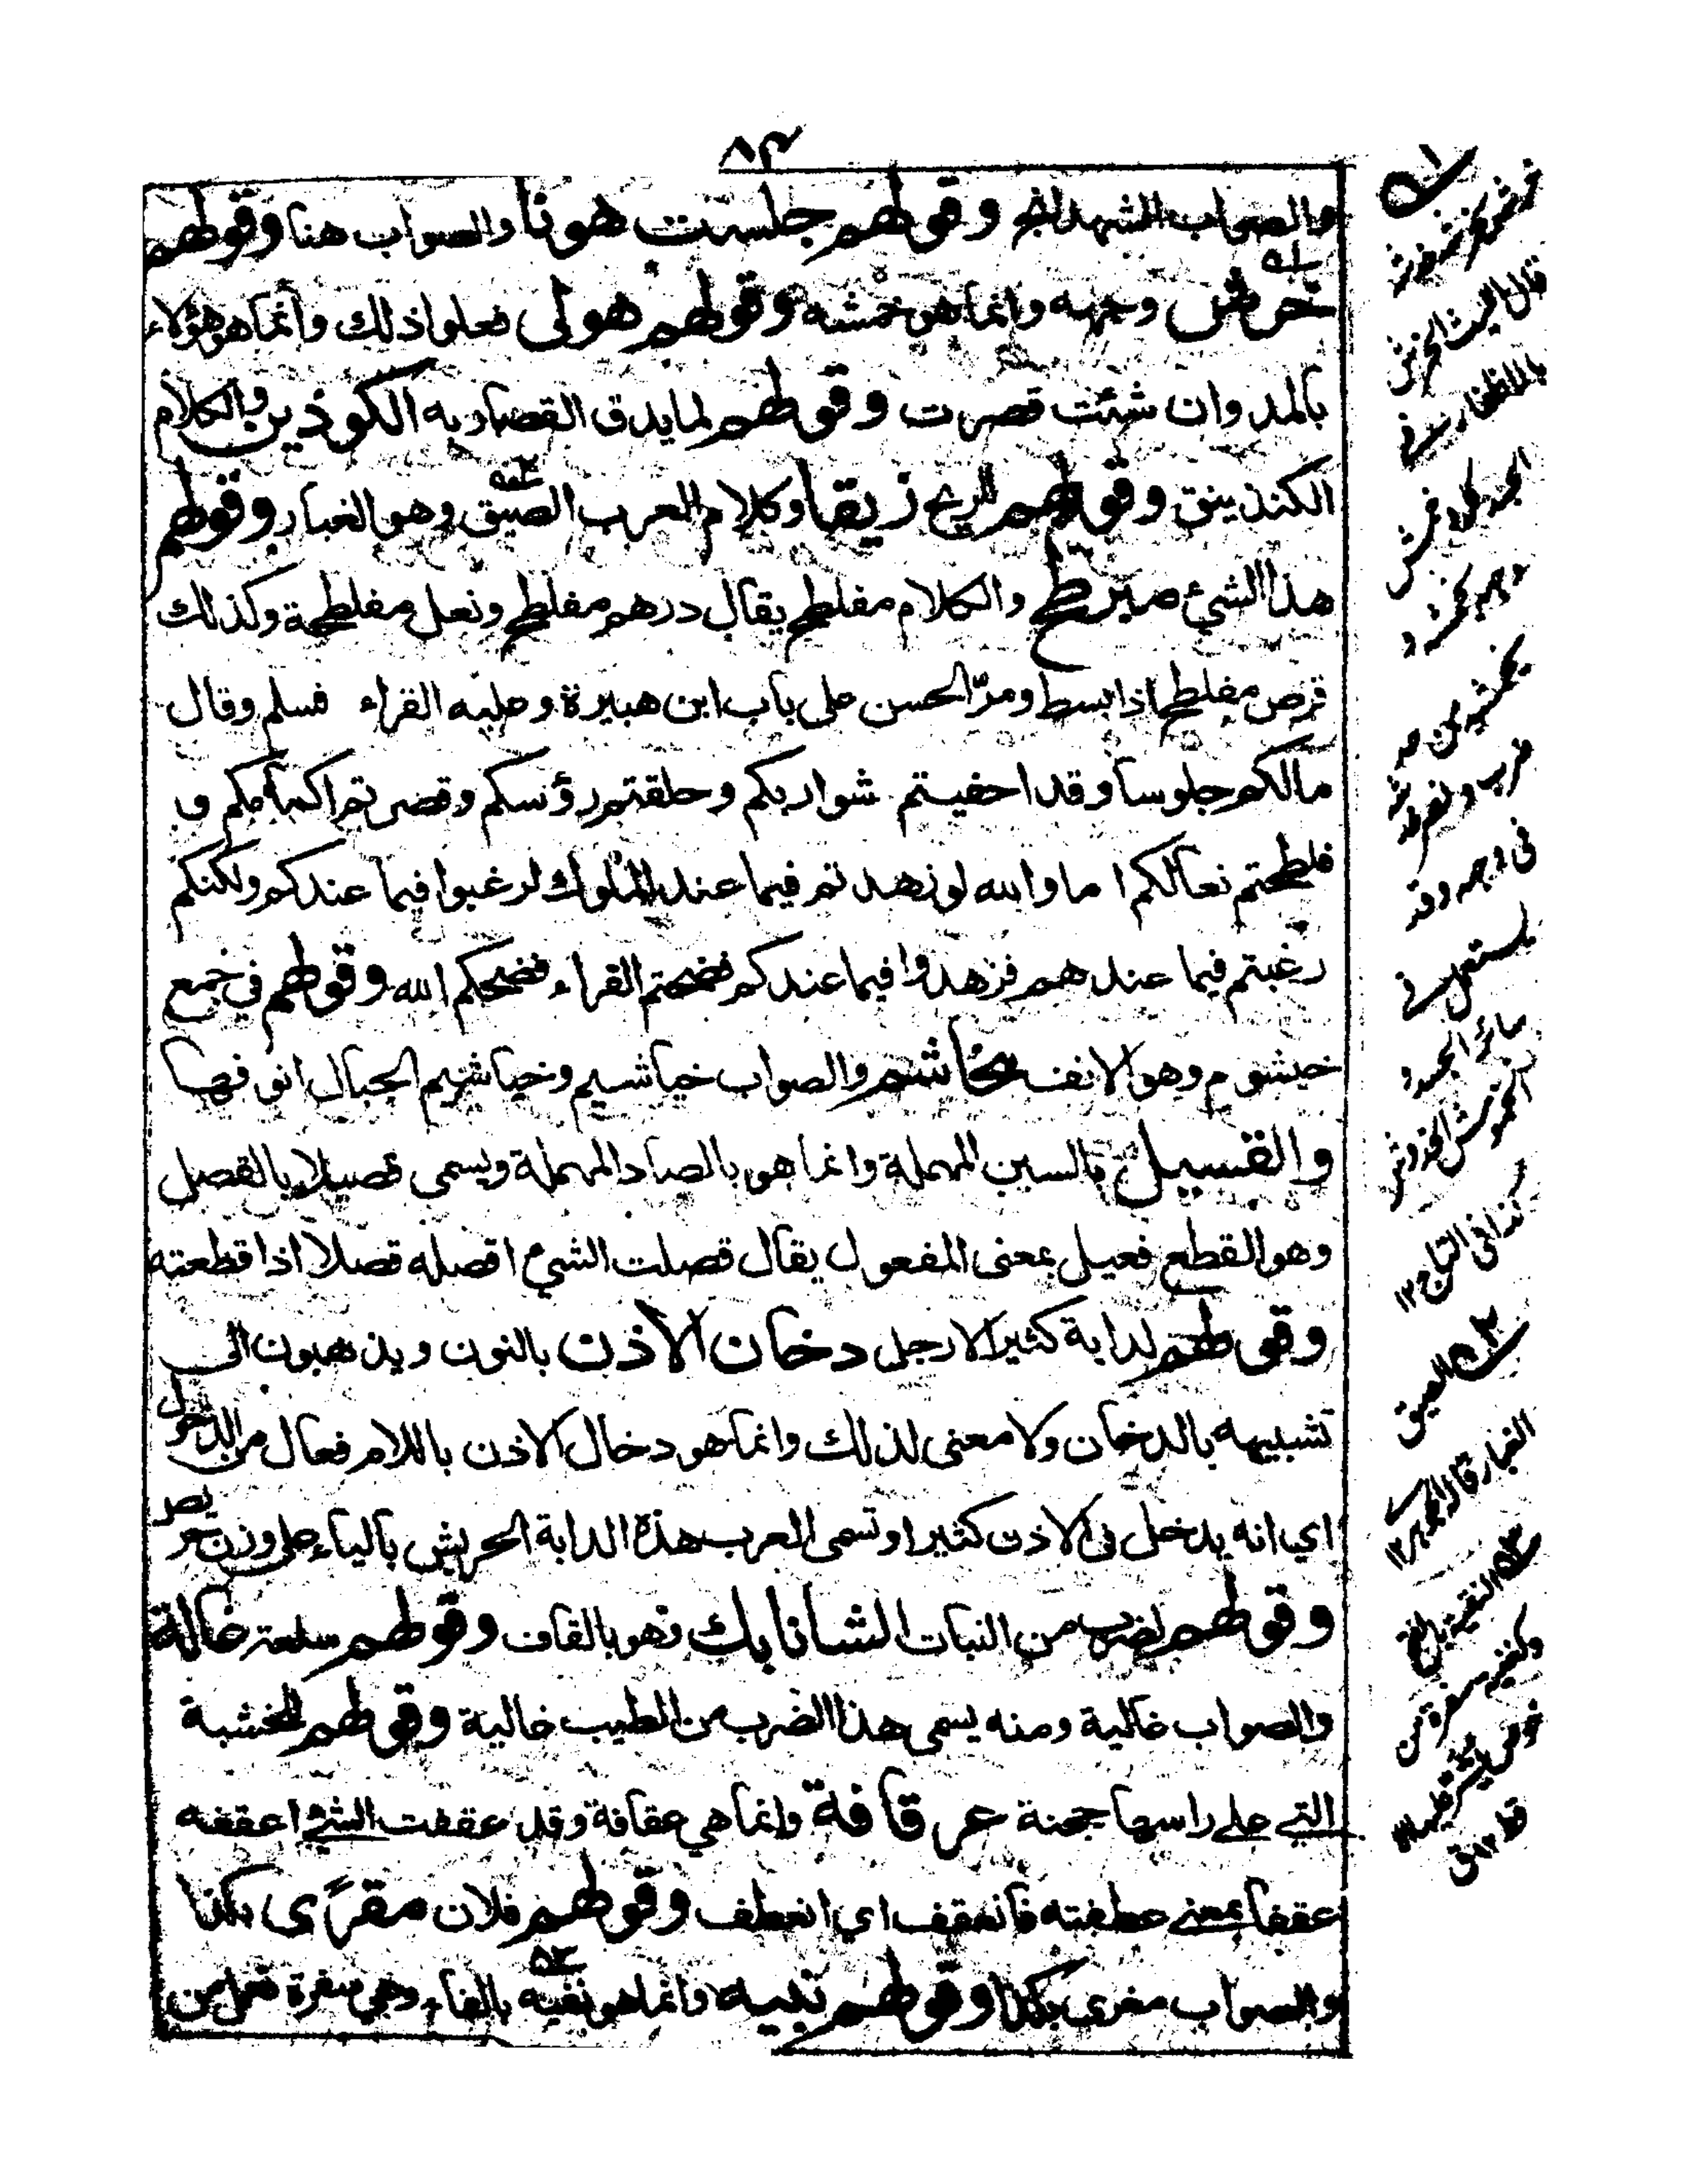 ٨٣
والصواب الشهدانج وقولهم جلست هونا والصواب هنا وقولهم
خرمش وجهه وانما هو خمشه وقولهم هولی فعلوا ذلك وانما هو هؤلاء
بالمد وان شئت قصرت وقولهم لما يدق القصار به الكوذين والكلام
الكنذينق وقولهم للريح زيقا وكلام العرب الصيق وهو الغبار وقولهم
هذا الشيء مبرطح والكلام مفلطح يقال درهم مفلطح ونعل مفلطحة وكذلك
قرص مفلطح اذا بسط ومرّ الحسن على باب ابن هبيرة وعليه القراء فسلم وقال
مالكم جلوسا وقد احفيتم شواربكم وحلقتم رؤسكم وقصرتم اكمامكم و
فلطحتم نعالكم اما والله لو زهدتم فيما عند الملوك لرغبوا فيما عندكم ولكنكم
رغبتم فيما عندهم فزهدوا فيما عندكم فضحتم القراء فضحكم الله وقولهم في جمع
خيشوم وهو الانف مخاشم والصواب خياشيم وخياشيم الجبال انوفها
والقسيل بالسين المهملة وانما هو بالصاد المهملة ويسمى قصيلا بالقصل
وهو القطع فعيل بمعنى المفعول يقال قصلت الشيء اقصله قصلا اذا قطعته
وقولهم لدابة كثير الارجل دخان الاذن بالنون ويذهبون الى
تشبيهه بالدخان ولا معنى لذلك وانما هو دخال الاذن باللام فعال من الدخول
اي انه يدخل فى الاذن كثيرا وتسمى العرب هذه الدابة الحريش بالياء على وزن حرير
وقولهم لضرب من النبات الشانابك وهو بالقاف وقولهم سلعة غالة
والصواب غالية ومنه يسمى هذا الضرب من الطيب غالية وقولهم للخشبة
التي على راسها حجنة عرقافة وانما هي عقافة وقد عقفت الشئ اعقفه
عقفا بمعنى عطفته فانعقف اي انعطف وقولهم فلان مقرًى بكذا
والصواب مغرى بكذا وقولهم نبيه وانما هو نفيه بالفاء وهي سفرة تعمل من
٥١
قال الليث الخرش
بالاظفار فى
الجسد كله وخرش
فى وجهه وقد
يستعمل فى
سائر الجسد و
الخموش الخدوش
كذا فى التاج ١٢
٥٢ الصيق
الغبار قاله الجوهرى ١٢